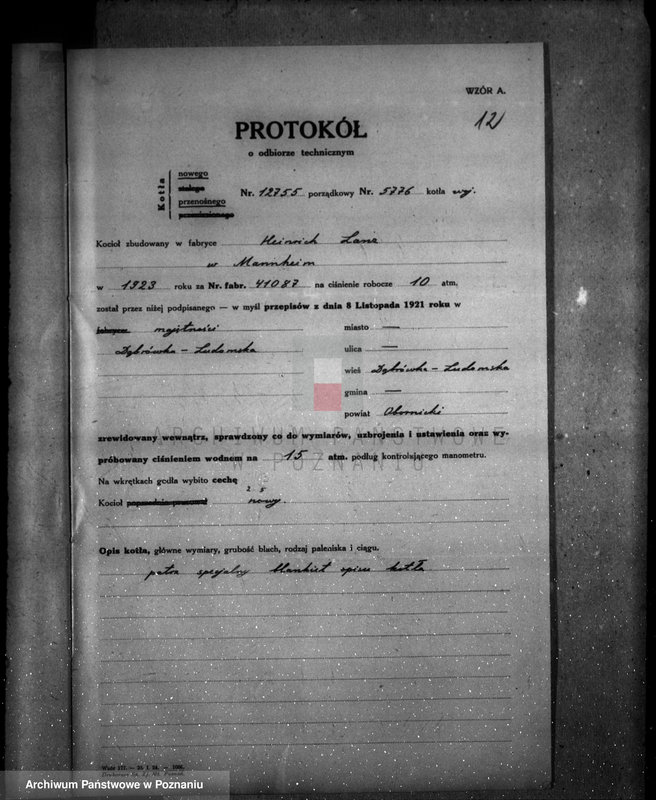 WZÓR A.
12
PROTOKÓŁ
o odbiorze technicznym
Kotła
nowego
stałego
przenośnego
przewoźnego
Nr. 12755 porządkowy Nr. 5776 kotła woj.
Kocioł zbudowany w fabryce Heinrich Lanz
w Mannheim
w 1923 roku za Nr. fabr. 41087 na ciśnienie robocze 10 atm.
został przez niżej podpisanego — w myśl przepisów z dnia 8 Listopada 1921 roku w
fabryce majętności
Dąbrówka - Ludomska
miasto —
ulica —
wieś Dąbrówka - Ludomska
gmina —
powiat Obornicki
ARCHIWUM PAŃSTWOWE
W POZNANIU
zrewidowany wewnątrz, sprawdzony co do wymiarów, uzbrojenia i ustawienia oraz wy-
próbowany ciśnieniem wodnem na 15 atm. podług kontrolującego manometru.
Na wkrętkach godła wybito cechę
2 5
Kocioł poprzednio pracował nowy.
Opis kotła, główne wymiary, grubość blach, rodzaj paleniska i ciągu.
patrz specjalny blankiet opisu kotła
Archiwum Państwowe w Poznaniu